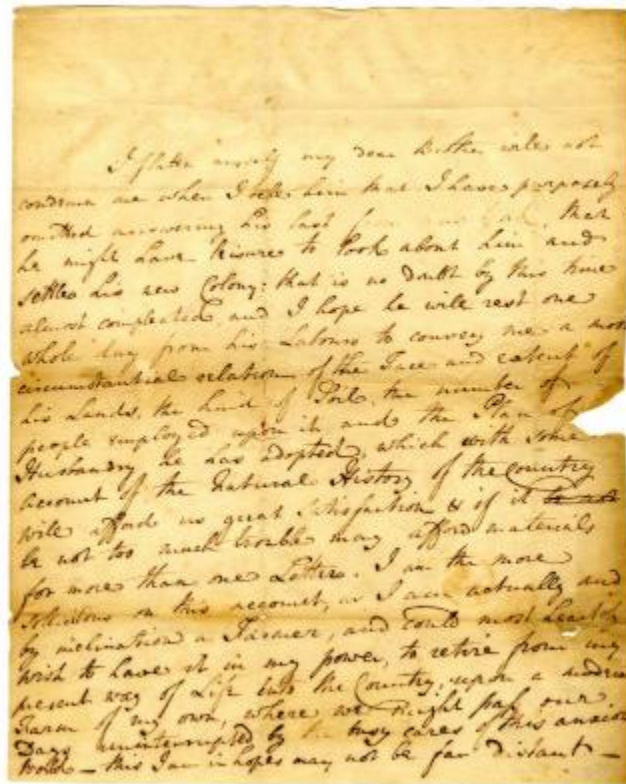 I flatter myself my dear Brother will not
condemn me when I tell him that I have purposely
omitted answering his last from that
he might have leisure to look about him and
settle his new Colony: that is no doubt by this time
almost compleated, and I hope he will rest one
whole day from his Labours to convey me a more
circumstantial relation of the Face and extent of
his Lands, the kind of Soil, the number of
people employed upon it and the Plan of
Husbandry he has adopted; which with some
account of the Natural History of the Country
will afford us great Satisfaction & if it be not
be not too much trouble may afford materials
for more than one Letter. I am the more
solicitous on this account, as I am actually and
by inclination a Farmer, and could most heartily
wish to have it in my power, to retire from my
present way of Life into the Country, upon a
Farm of my own, where we might pass our
Days uninterrupted by the busy cares of this anxious
World — this I am in hopes may not be far distant —